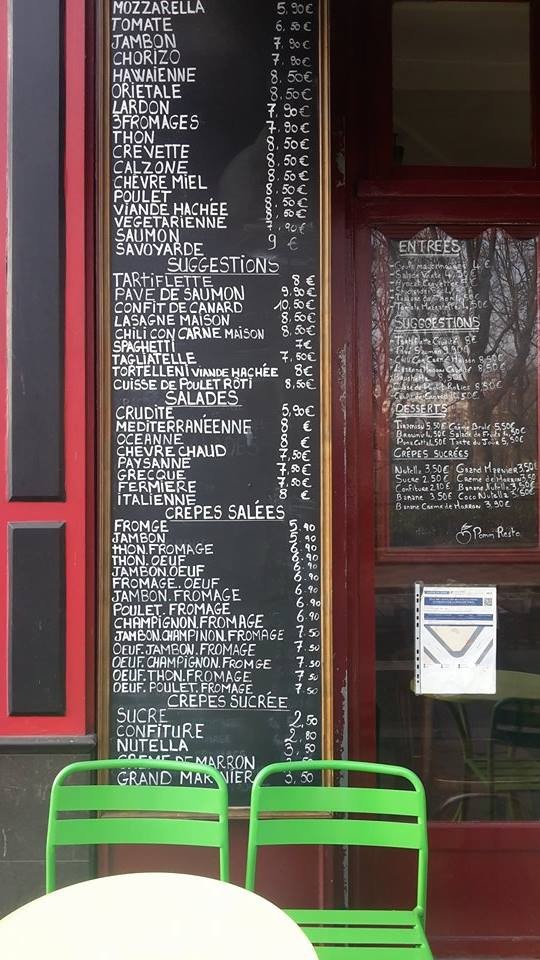 MOZZARELLA 5,90€
TOMATE 6,50€
JAMBON 7,90€
CHORIZO 7,90€
HAWAÏENNE 8,50€
ORIETALE 8,50€
LARDON 7,90€
3FROMAGES 7,90€
THON 8,50€
CREVETTE 8,50€
CALZONE 8,50€
CHÈVRE MIEL 8,50€
POULET 8,50€
VIANDE HACHÉE 8,50€
VEGETARIENNE 7,90€
SAUMON 9 €
SAVOYARDE
SUGGESTIONS
TARTIFLETTE 8 €
PAVE DE SAUMON 9,90€
CONFIT DE CANARD 10,50€
LASAGNE MAISON 8,50€
CHILI CON CARNE MAISON 8,50€
SPAGHETTI 7€
TAGLIATELLE 7,50€
TORTELLENI VIANDE HACHÉE 8€
CUISSE DE POULET RÔTI 8,50€
SALADES
CRUDITE 5,90€
MEDITERRANÉENNE 8 €
OCEANNE 8 €
CHEVRE CHAUD 7,50€
PAYSANNE 7,50€
GRECQUE 7,50€
FERMIERE 7,50€
ITALIENNE 8 €
CREPES SALÉES
FROMGE 5.90
JAMBON 5.90
THON.FROMAGE 6.90
THON.OEUF 6.90
JAMBON OEUF 6.90
FROMAGE.OEUF 6.90
JAMBON.FROMAGE 6.90
POULET.FROMAGE 6.90
CHAMPIGNON.FROMAGE 6.90
JAMBON.CHAMPINON.FROMAGE 7.50
OEUF.JAMBON.FROMAGE 7.50
OEUF.CHAMPIGNON.FROMGE 7.50
OEUF.THON.FROMAGE 7.50
OEUF.POULET.FROMAGE 7.50
CREPES SUCRÉE
SUCRE 2,50
CONFITURE 2,80
NUTELLA 3,50
CREME DE MARRON
GRAND MARNIER 3,50
ENTREES
SUGGGESTIONS
DESSERTS
Tiramisu 5,50€ Crème Brulé 5,50€
Tarte du Jour 5,50€
CRÊPES SUCRÉES
Nutella 3,50€ Grand Marnier 3,50€
Sucre 2,50€ Creme de Marron 3,50
Confiture 2,80€ Banane Nutella 3,50€
Banane 3,50€ Coco Nutella 3,50€
Banane Creme de Marron 3,90€
Pomm'Resto